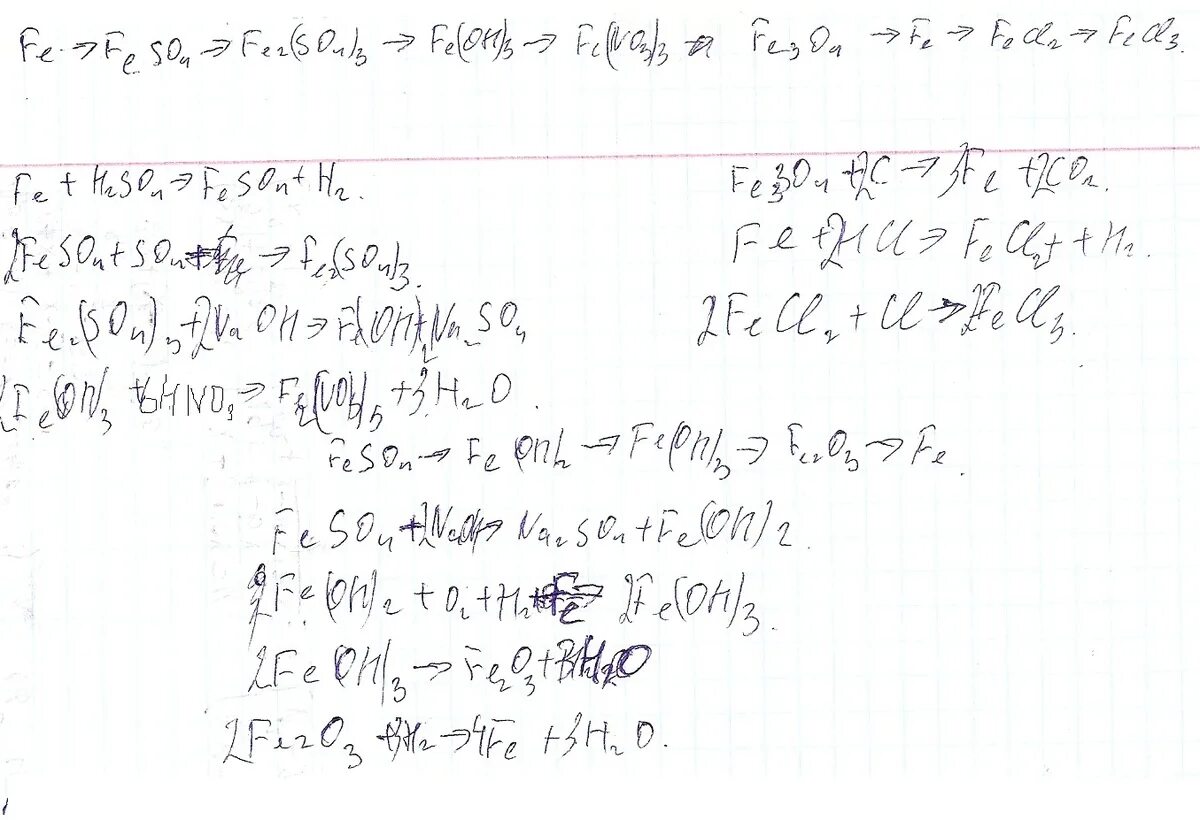 Fe → FeSO4 → Fe2(SO4)3 → Fe(OH)3 → Fe(NO3)3 Fe3O4 → Fe → FeCl2 → FeCl3.
Fe + H2SO4 → FeSO4 + H2.
2FeSO4 + SO4 → Fe2(SO4)3.
Fe2(SO4)3 + 2NaOH → Fe(OH)2 + Na2SO4
2Fe(OH)3 + 6HNO3 → + 3H2O.
Fe3O4 + 2C → 3Fe + 2CO2.
Fe + 2HCl → FeCl2 + H2.
2FeCl2 + Cl → 2FeCl3.
FeSO4 → Fe(OH)2 → Fe(OH)3 → Fe2O3 → Fe.
FeSO4 + 2NaOH → Na2SO4 + Fe(OH)2.
2Fe(OH)2 + O2 + H2 2Fe(OH)3.
2Fe(OH)3 → Fe2O3 + 3H2O
2Fe2O3 + 3H2 → 4Fe + 3H2O.